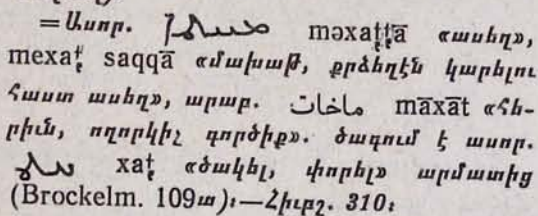 =Ասոր. ܡܚܛܐ məxaṭṭā «ասեղ»,
mexaṭ saqqā «մախաթ, քրձեղէն կարելու
հաստ ասեղ», արաբ. ماخات māxāt «հե-
րիւն, ողորկիչ գործիք». ծագում է ասոր.
ܚܛ xaṭ «ծակել, փորել» արմատից
(Brockelm. 109տ)։—Հիւբշ. 310։